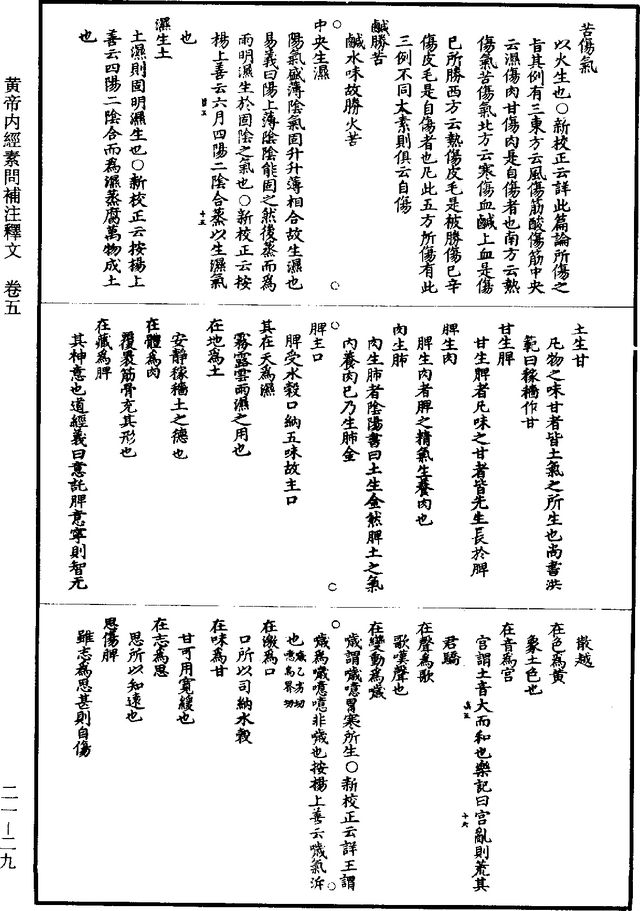 黄帝内經素問補注釋文　卷五
苦傷氣
以火生也○新校正云詳此篇論所傷之
旨其例有三東方云風傷筋酸傷筋中央
云濕傷肉甘傷肉是自傷者也南方云熱
傷氣苦傷氣北方云寒傷血鹹上血是傷
已所勝西方云熱傷皮毛是被勝傷已辛
傷皮毛是自傷者也凡此五方所傷有此
三例不同太素則俱云自傷
鹹勝苦
鹹水味故勝火苦
中央生濕
陽氣盛薄陰氣固升升薄相合故生濕也
易義曰陽上薄陰陰能固之然後蒸而為
雨明濕生於固陰之氣也○新校正云按
楊上善云六月四陽二陰合蒸以生濕氣
也
濕生土
土濕則固明濕生也○新校正云按楊上
善云四陽二陰合而為濕蒸腐萬物成土
也
土生甘
凡物之味甘者皆土氣之所生也尚書洪
範曰稼穡作甘
甘生脾
甘生脾者凡味之甘者皆先生長於脾
脾生肉
脾生肉者脾之精氣生養肉也
肉生肺
肉生肺者陰陽書曰土生金然脾土之氣
內養肉已乃生肺金
脾主口
脾受水穀口納五味故主口
其在天為濕
霧露雲雨濕之用也
在地為土
安靜稼穡土之德也
在體為肉
覆裹筋骨充其形也
在藏為脾
其神意也道經義曰意託脾意寧則智无
散越
在色為黃
象土色也
在音為宮
宮謂土音大而和也樂記曰宮亂則荒其
君驕
在聲為歌
歌嘆聲也
在變動為噦
噦謂噦噫胃寒所生○新校正云詳王謂
噦為噦噫噫非噦也按楊上善云噦氣泝
也噦乙劣切噫烏界切
在竅為口
口所以司納水穀
在味為甘
甘可用寬緩也
在志為思
思所以知遠也
思傷脾
雖志為思甚則自傷
二一－二九